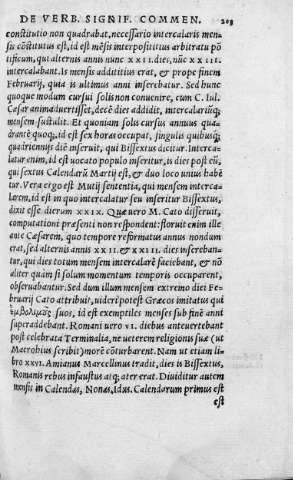 DE VERB. SIGNIF. COMMEN. 203
constitutio non quadrabat, necessario intercalaris men-
sis cõstitutus est, id est mẽsis interpositius arbitratu põ
tificum, qui alternis annis nunc XXII. dies, nũc XXIII.
intercalabant. Is mensis addititius erat, & prope finem
Februarij, quia is ultimus anni inserebatur. Sed hunc
quoque modum cursui solis non conuenire, cum C. Iul.
Cæsar animaduertisset, decẽ dies addidit, intercalariũq;
mensem sustulit. Et quoniam solis cursus annuus qua
drantẽ quoq;, id est sex horas occupat, singulis quibusq;
quadriennijs diẽ inseruit, qui Bissextus dicitur. Interca
latur enim, id est uocato populo inseritur, is dies post eũ,
qui sextus Calendarũ Martij est, & duo loco unius habẽ
tur. Vera ergo est Mutij sententia, qui mensem interca
larem, id est in quo intercalatur seu inseritur Bissextus,
dixit esse dierum XXIX. Quæ uero M. Cato disseruit,
computationi præsenti non respondent: floruit enim ille
ante Cæsarem, quo tempore reformatus annus nondum
erat, sed alternis annis XXII. & XXIII. dies inserebãn
tur, qui dies totum mensem intercalarẽ faciebant, & nõ
aliter quàm si solum momentum temporis occuparent,
obseruabantur. Sed dum illum mensem extremo diei Fe-
bruarij Cato attribuit, uideri potest Græcos imitatus qui
ἐμβολίμους suos, id est exemptiles menses sub finẽ anni
superaddebant. Romani uero VI. diebus anteuertebant
post celebrata Terminalia, ne ueterem religionis suæ (ut
Macrobius scribit) morẽ cõturbarent. Nam ut etiam li-
bro XXVI. Amianus Marcellinus tradit, dies is Bissextus,
Romanis rebus infaustus atq; ater erat. Diuiditur autem
mensis in Calendas, Nonas, Idus. Calendarum primus est
est